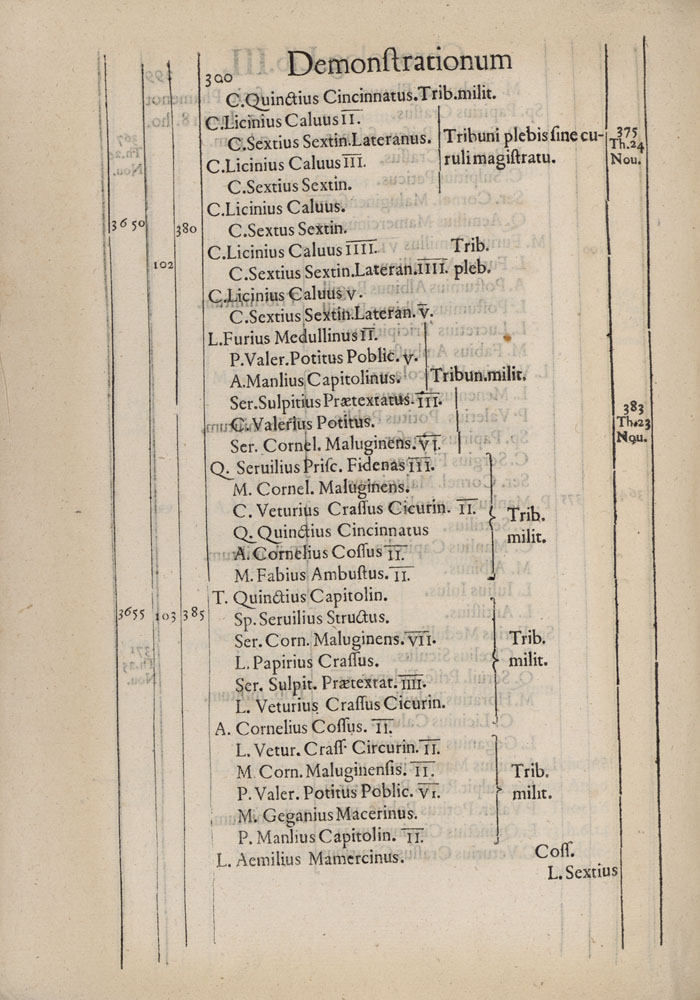 300 Demonſtrationum
C.Quinctius Cincinnatus.Trib.milit.
C.Licinius Caluus II.
C.Sextius Sextin.Lateranus. Tribuni plebis ſine cu- 375
C.Licinius Caluus III. ruli magiſtratu. Th.24
C.Sextius Sextin. Nou.
C.Licinius Caluus.
3650 380 C.Sextus Sextin.
C.Licinius Caluus IIII. Trib.
102 C.Sextius Sextin.Lateran.IIII. pleb.
C.Licinius Caluus v.
C.Sextius Sextin.Lateran. v.
L.Furius Medullinus II.
P.Valer.Potitus Poblic. v.
A.Manlius Capitolinus. Tribun.milit.
Ser.Sulpitius Prætextatus. III. 383
C.Valerius Potitus. Th.23
Ser. Cornel. Maluginens. VI. Nou.
Q. Seruilius Priſc. Fidenas III.
M. Cornel. Maluginens.
C. Veturius Craſſus Cicurin. II. Trib.
Q. Quinctius Cincinnatus milit.
A. Cornelius Coſſus II.
M. Fabius Ambuſtus. II.
T. Quinctius Capitolin.
3655 103 385 Sp. Seruilius Structus.
Ser. Corn. Maluginens. VII. Trib.
L. Papirius Craſſus. milit.
Ser. Sulpit. Prætextat. IIII.
L. Veturius Craſſus Cicurin.
A. Cornelius Coſſus. II.
L. Vetur. Craſſ Circurin. II.
M. Corn. Maluginenſis. II. Trib.
P. Valer. Potitus Poblic. VI. milit.
M. Geganius Macerinus.
P. Manlius Capitolin. II.
L. Aemilius Mamercinus. Coſſ.
L. Sextius